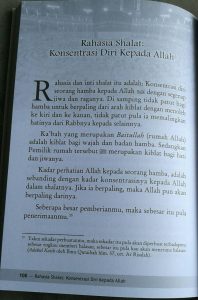 Rahasia Shalat:
Konsentrasi Diri Kepada Allah
Rahasia dan inti shalat itu adalah; Konsentrasi diri
seorang hamba kepada Allah dengan segenap
jiwa dan raganya. Di samping tidak patut bagi
hamba untuk berpaling dari arah kiblat dengan menoleh
ke kiri dan ke kanan, tidak patut pula ia memalingkan
hatinya dari Rabbnya kepada selainnya.
Ka'bah yang merupakan Baitullah (rumah Allah)
adalah kiblat bagi wajah dan badan hamba. Sedangkan
Pemilik rumah tersebut merupakan kiblat bagi hati
dan jiwanya.
Kadar perhatian Allah kepada seorang hamba, adalah
sebanding dengan kadar konsentrasinya kepada Allah
dalam shalatnya. Jika ia berpaling, maka Allah pun akan
berpaling darinya.
Seberapa besar pemberianmu, maka sebesar itu pula
penerimaanmu.
maka sekadar itu pula akan
sebesar itu pula
108 - Rahasia Shalat: Konsentrasi Diri Kepada Allah